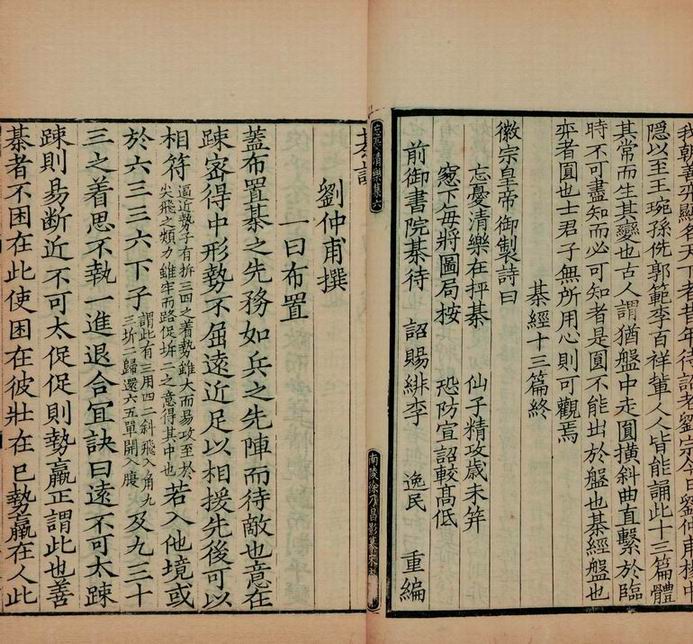 我朝善弈顯名天下者昔年待詔老劉宗今日劉仲甫楊中
隱以至王琬孫侁郭範李百祥輩人人皆能誦此十三篇體
其常而生其變也古人謂猶盤中走圓橫斜曲直繫於臨
時不可盡知而必可知者是圓不能出於盤也棊經盤也
弈者圓也士君子無所用心則可觀焉
棊經十三篇終
徽宗皇帝御製詩曰
忘憂清樂在枰棊 仙子精攻歲未笄
窓下每將圖局按 恐防宣詔較高低
前御書院棊待 詔賜緋李 逸民 重編
忘憂清樂集 六
南陵徐乃昌影摹宋本
棊訣
劉仲甫撰
一曰布置
蓋布置棊之先務如兵之先陣而待敵也意在
踈密得中形勢不屈遠近足以相援先後可以
相符
逼近勢子有拆三四之着勢雖大而易攻至於
尖飛之類力雖牢而路促坼二之意得其中也
若入他境或
於六三三六下子
謂此有三用四二斜飛入角九
三坼二歸還六五單開入腹
及九三十
三之着思不執一進退合宜訣曰遠不可太踈
踈則易断近不可太促促則勢羸正謂此也善
棊者不困在此使困在彼壯在已勢羸在人此